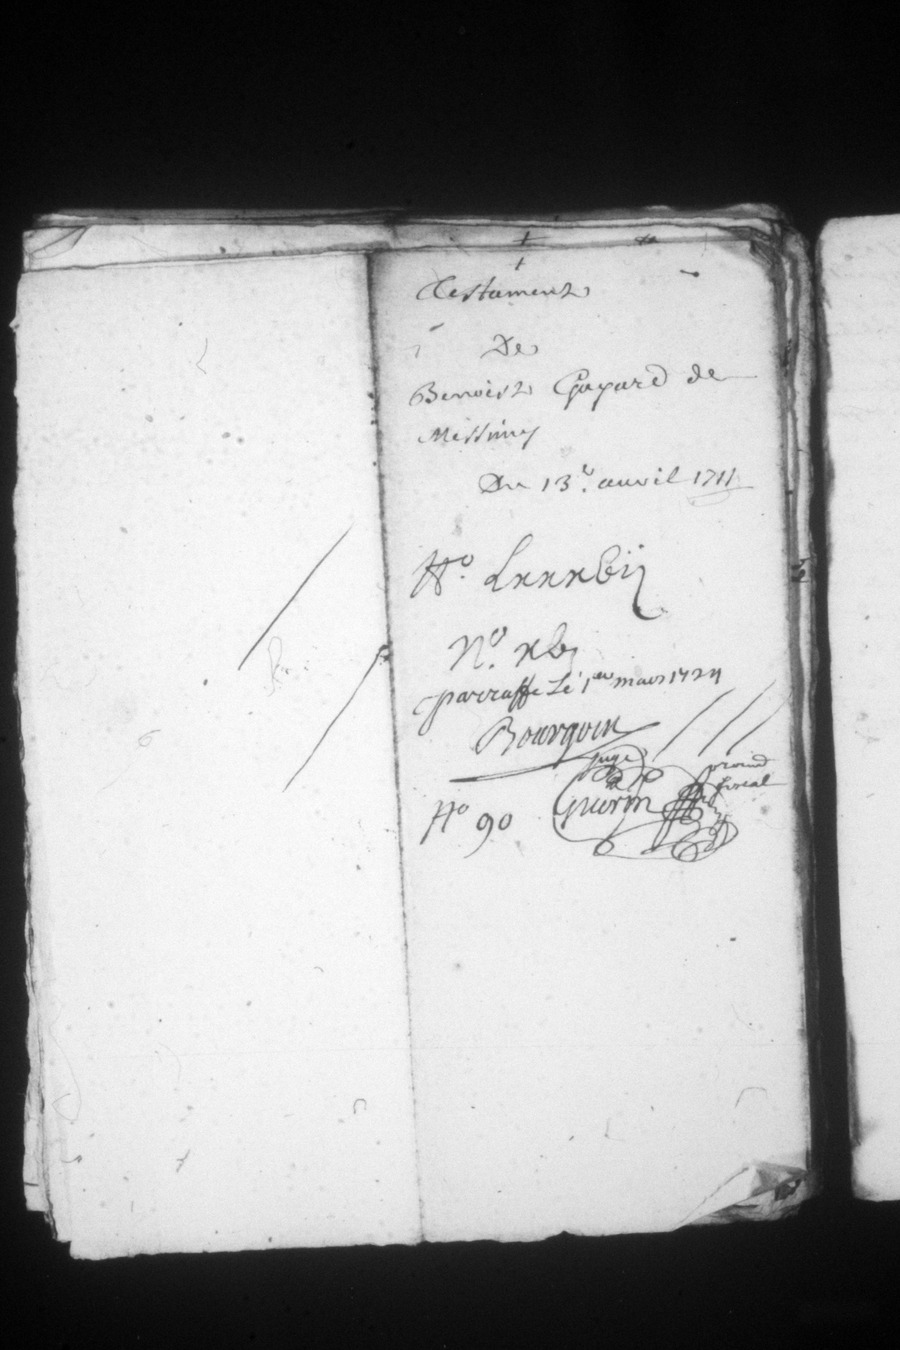 Testament
De
Benoist Gayard de
Messimy
Du 13e. auril 1711
No. Lxxxxbij
No. xbj
parraffé Le 1er mars 1724
Bourgoin
juge
Guerin
fiscal
No 90